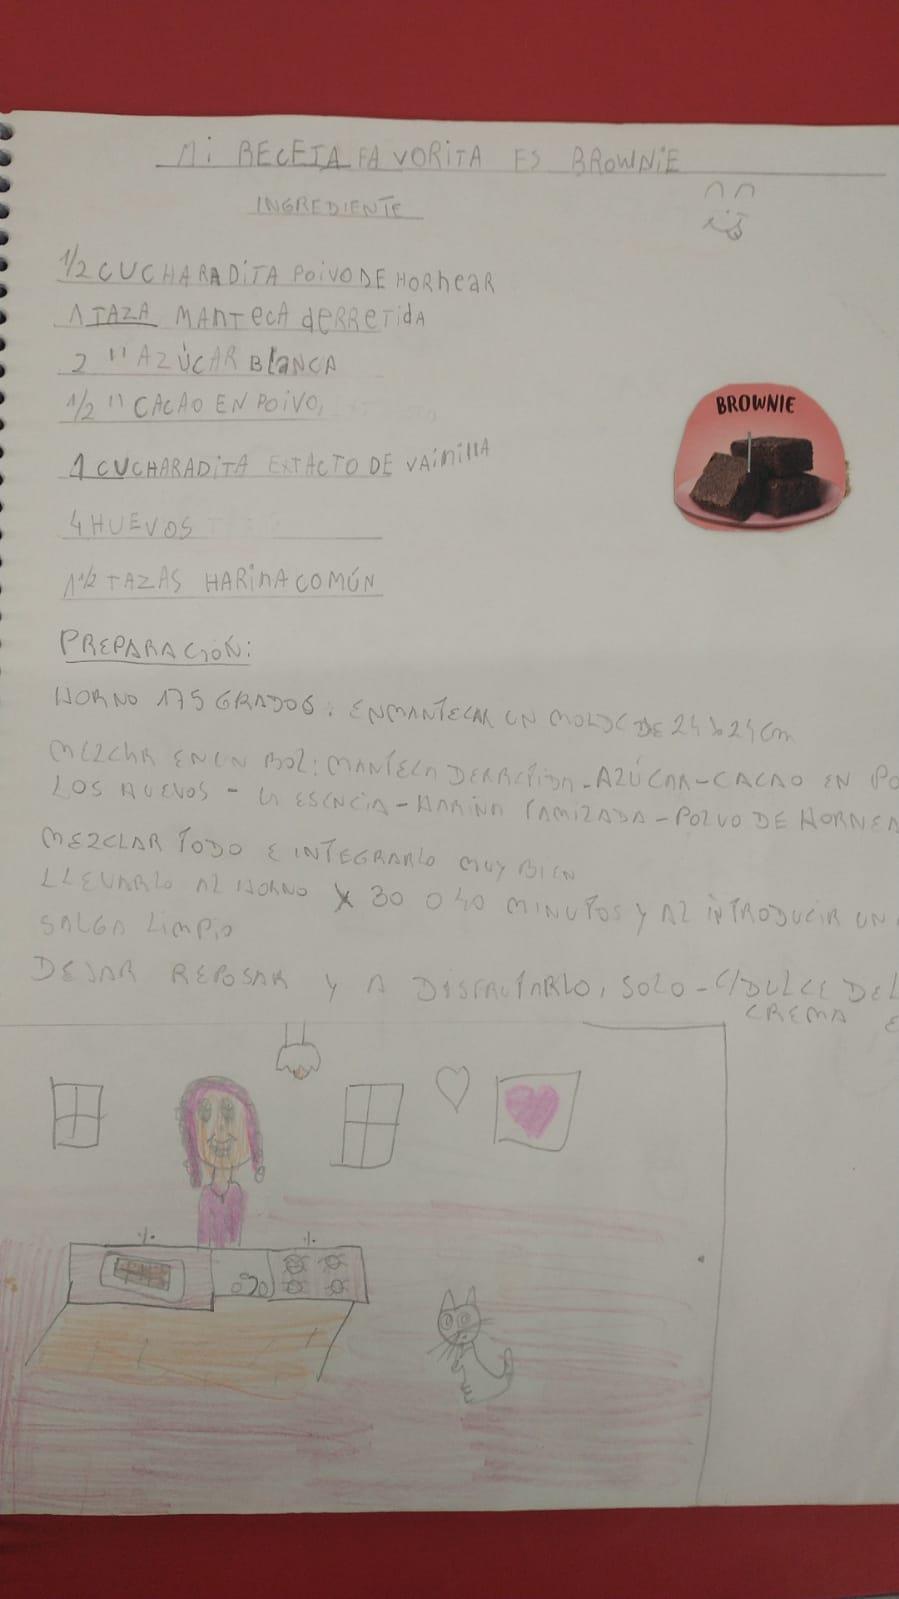 Mi RECETA FAVORITA ES BROWNiE
INGREDIENTE
1/2 CUCHARADiTA POlVO DE HORnEAR
1 TAZA MAnTECA dERRETIdA
2 " AZÚCAR BlANCA
1/2 " CACAO EN POlVO,
1 CUCHARADiTA EXTACTO DE VAiNillA
4 HUEVOS
1 1/2 TAZAS HARiNA COMÚN
BROWNIE
PREPARACIÓN:
HORNO 175 GRADOS: ENMANTECAR UN MOLDE DE 24 x 24 cm
MEZCLAR EN UN BOL: MANTECA DERRETIDA - AZÚCAR - CACAO EN PO
LOS HUEVOS - LA ESENCIA - HARINA TAMIZADA - POLVO DE HORNEA
MEZCLAR TODO E INTEGRARLO MUY BIEN
LLEVARLO AL HORNO X 30 O 40 MINUTOS Y AL INTRODUCIR UN
SALGA LIMPIO
DEJAR REPOSAR Y A DISFRUTARLO, SOLO - C/DULCE DE L
CREMA